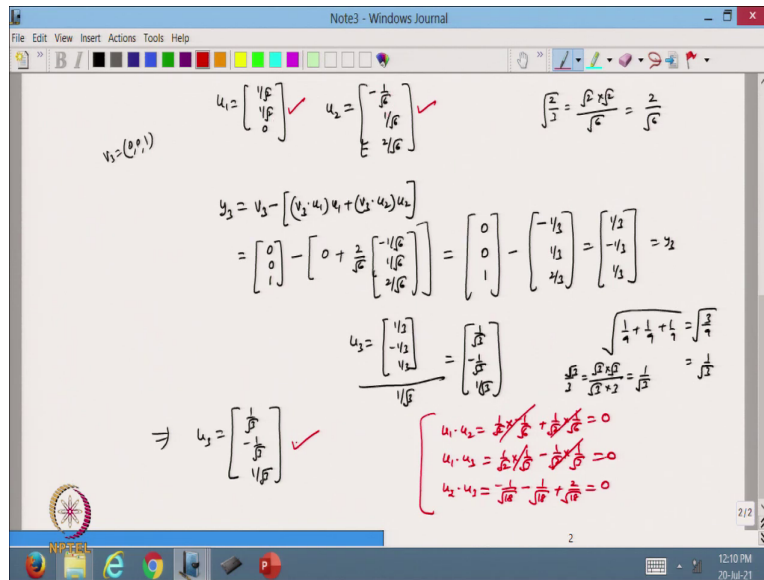 Note3 - Windows Journal
File Edit View Insert Actions Tools Help
u₁ = [1/√2, 1/√2, 0] ✓ u₂ = [-1/√6, 1/√6, 2/√6] ✓ √(2/3) = (√2 × √2)/√6 = 2/√6
v₃ = (0,0,1)
y₃ = v₃ - [(v₃·u₁)u₁ + (v₃·u₂)u₂]
= [0, 0, 1] - [0 + 2/√6 [-1/√6, 1/√6, 2/√6]] = [0, 0, 1] - [-1/3, 1/3, 2/3] = [1/3, -1/3, 1/3] = y₃
u₃ = [1/3, -1/3, 1/3] / (1/√3) = [1/√3, -1/√3, 1/√3]
√(1/9 + 1/9 + 1/9) = √(3/9)
= 1/√3
√3/3 = (√3 × √3)/(√3 × 3) = 1/√3
⇒ u₃ = [1/√3, -1/√3, 1/√3] ✓
u₁·u₂ = 1/√2 × -1/√6 + 1/√2 × 1/√6 = 0
u₁·u₃ = 1/√2 × 1/√3 - 1/√2 × 1/√3 = 0
u₂·u₃ = -1/√18 - 1/√18 + 2/√18 = 0
NPTEL
2
2/2
12:10 PM
20-Jul-21